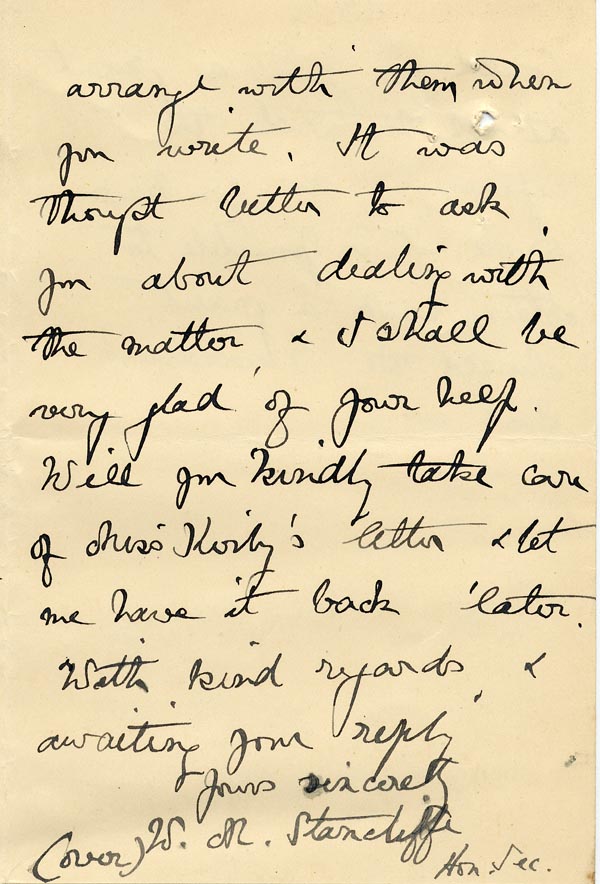 arrange with them when
you write. It was
thought better to ask
you about dealing with
the matter & I shall be
very glad of your help.
Will you kindly take care
of Miss Kirby's letter & let
me have it back later.
With kind regards &
awaiting your reply
Yours sincerely
(over) W. M. Stancliffe
Hon. Sec.